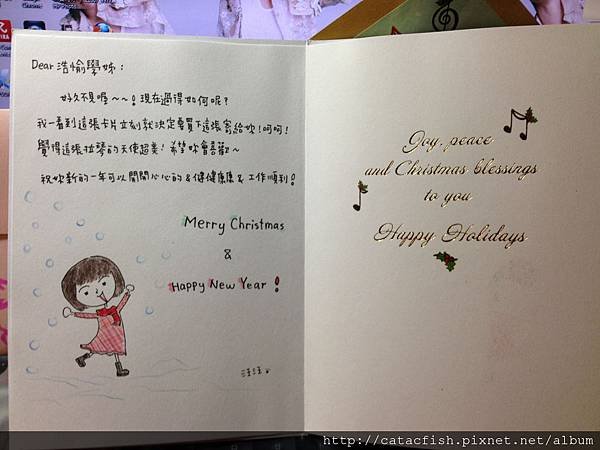 Dear 浩愉學姊：
好久不見喔～～！現在過得如何呢？
我一看到這張卡片立刻就決定要買下這張寄給妳！呵呵！
覺得這張拉琴的天使超美！希望妳會喜歡～
祝妳新的一年可以開開心心的 & 健健康康 & 工作順利！
Merry Christmas
&
Happy New Year！
汪汪
Joy, peace
and Christmas blessings
to you
Happy Holidays
http://catacfish.pixnet.net/album